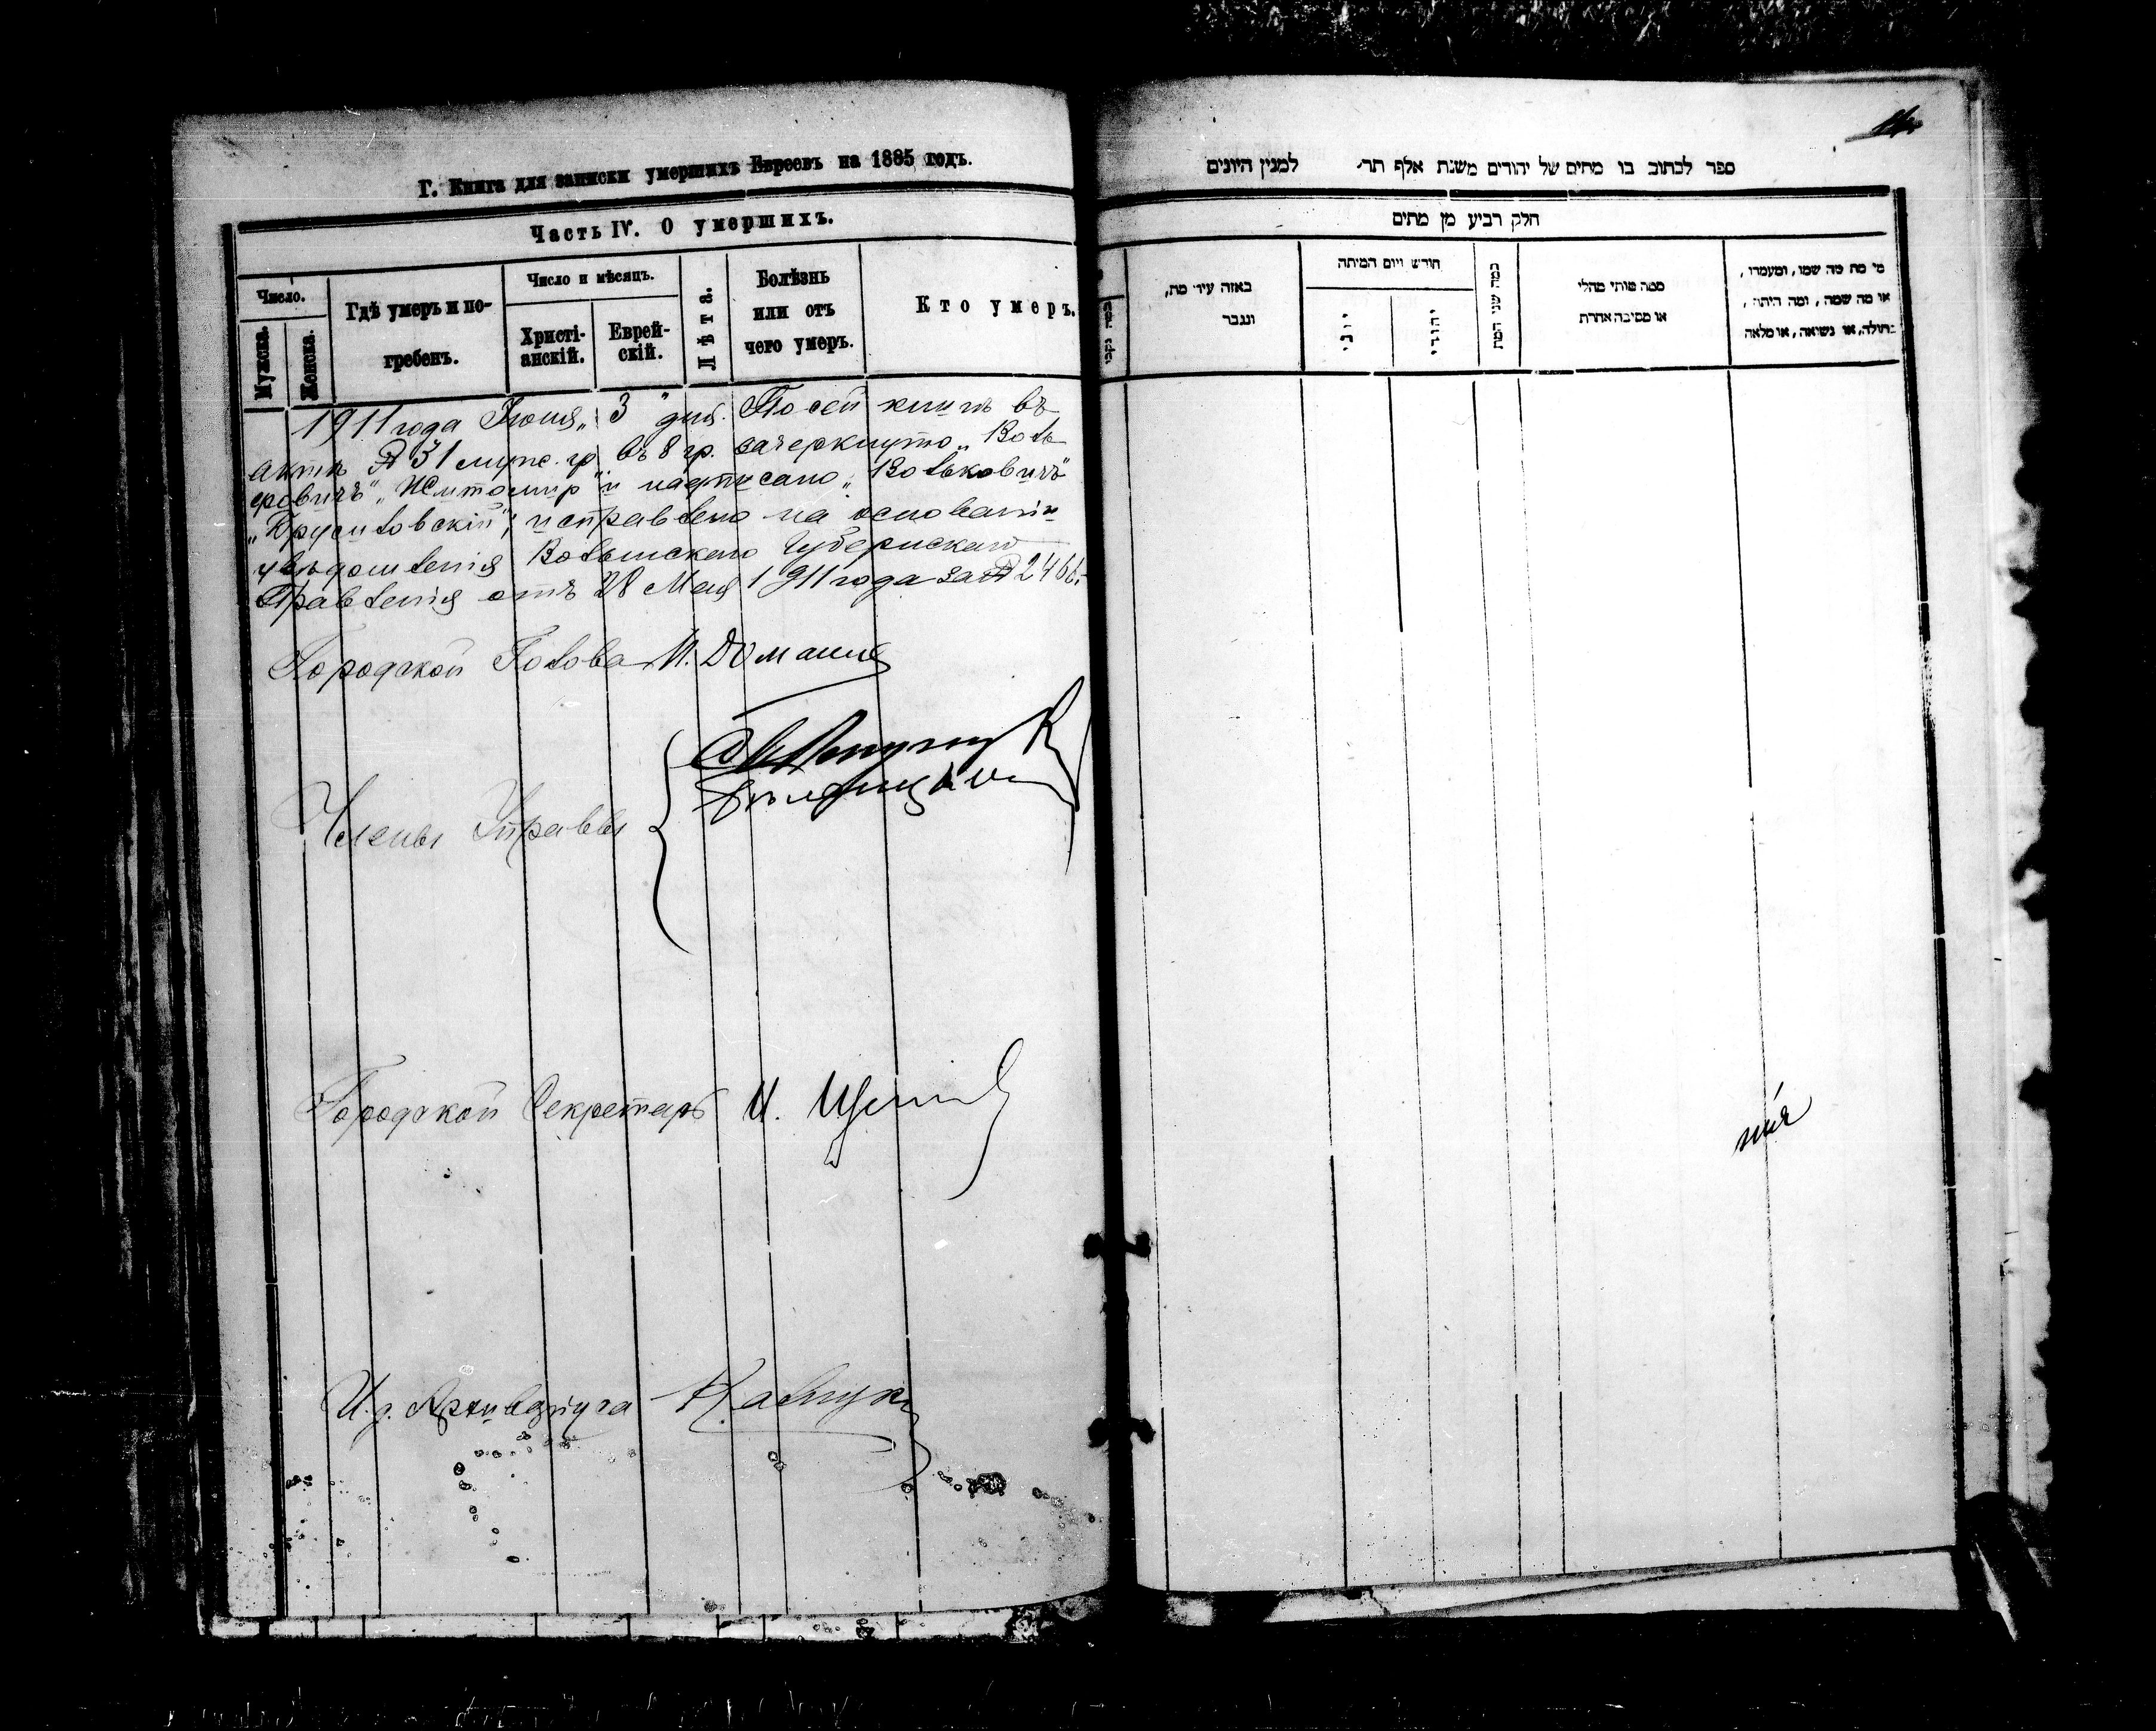 Г. Книга для записки умершихъ Евреевъ на 1885 годъ.
Часть IV. О умершихъ.
Число.
Мужска.
Женска.
Гдѣ умеръ и по-
гребенъ.
Число и мѣсяцъ.
Христі-
анскій.
Еврей-
скій.
Лѣта.
Болѣзнь
или отъ
чего умеръ.
Кто умеръ.
1911 года Іюня „3" дня. По сей книгѣ въ
актѣ № 31 мужс. гр. въ 8 гр. зачеркнуто „Воль
фовичъ", „Житомир" и надписано „Вольковичъ"
„Брусиловскій"; исправлено на основаніи
увѣдомленія Волынскаго Губернскаго
Правленія отъ 28 Мая 1911 года за № 2466.
Городской Голова И. Домание
Члены Управы
Городской Секретарь И.
И. д. Архиваріуса
ספר לכתוב בו מתים של יהודים משנת אלף תר׳ למנין היונים
חלק רביע מן מתים
מי מת מה שמו, ומעמדו,
או מה שמה, ומה היתה,
בתולה, או נשואה, או מלאה
ממה מותו מחלי
או מסיבה אחרת
כמה שני המת
חודש ויום המיתה
יהודי
יוני
באזה עיר מת,
ונגבר